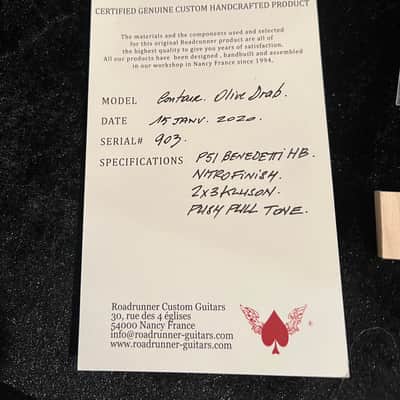 CERTIFIED GENUINE CUSTOM HANDCRAFTED PRODUCT
The materials and the components used and selected
for this original Roadrunner product are all of
the highest quality to give you years of satisfaction.
All our products have been designed, handbuilt and assembled
in our workshop in Nancy France since 1994.
MODEL Contour. Olive Drab.
DATE 15 JANV. 2020.
SERIAL# 903.
SPECIFICATIONS P51 BENEDETTI HB.
NITRO FINISH.
2x3 KLUSON.
PUSH PULL TONE.
Roadrunner Custom Guitars
30, rue des 4 églises
54000 Nancy France
info@roadrunner-guitars.com
www.roadrunner-guitars.com
®